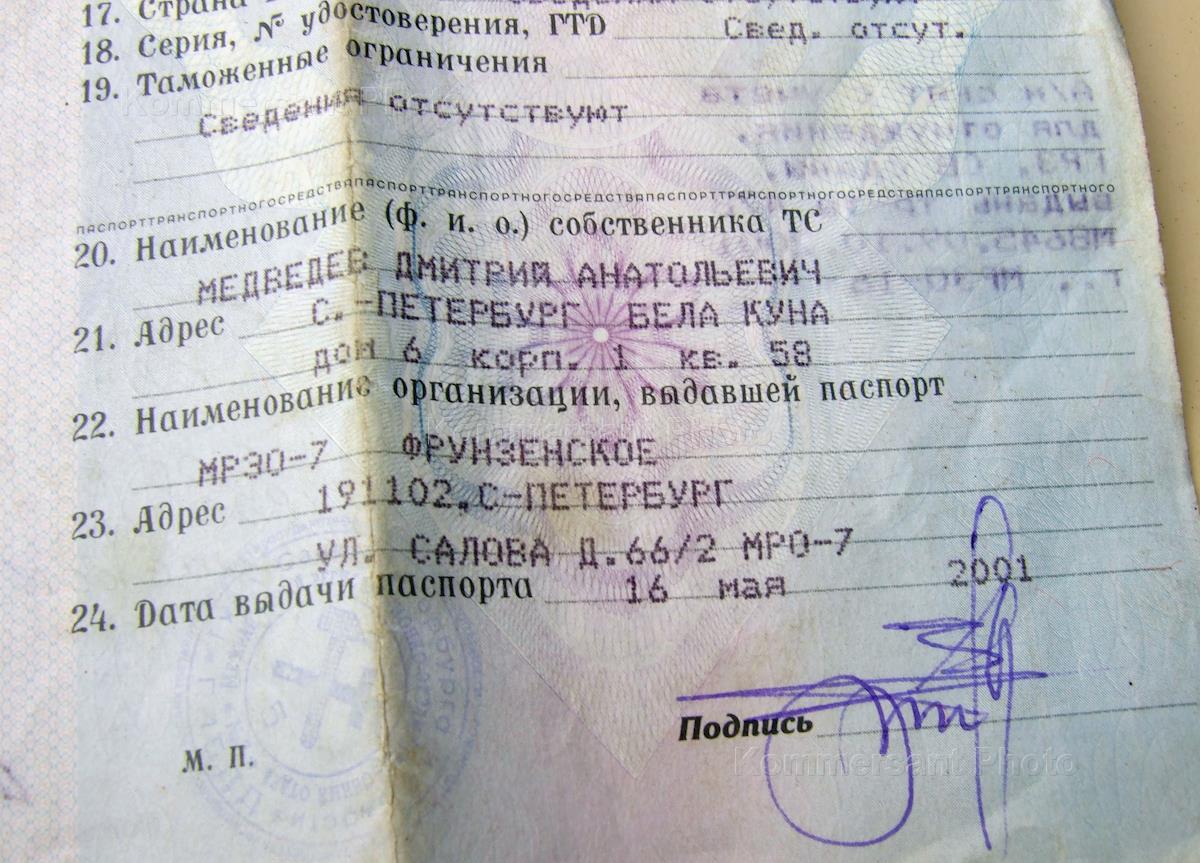 17. Страна
18. Серия, № удостоверения, ГТD Свед. отсут.
19. Таможенные ограничения
Сведения отсутствуют
ПАСПОРТТРАНСПОРТНОГОСРЕДСТВАПАСПОРТТРАНСПОРТНОГОСРЕДСТВАПАСПОРТТРАНСПОРТНОГОСРЕДСТВАПАСПОРТТРАНСПОРТНОГО
20. Наименование (ф. и. о.) собственника ТС
МЕДВЕДЕВ ДМИТРИЙ АНАТОЛЬЕВИЧ
21. Адрес С.-ПЕТЕРБУРГ БЕЛА КУНА
дом 6 корп. 1 кв. 58
22. Наименование организации, выдавшей паспорт
МРЭО-7 ФРУНЗЕНСКОЕ
23. Адрес 191102,С-ПЕТЕРБУРГ
УЛ. САЛОВА Д.66/2 МРО-7
24. Дата выдачи паспорта 16 мая 2001
Подпись
М. П.
Kommersant Photo